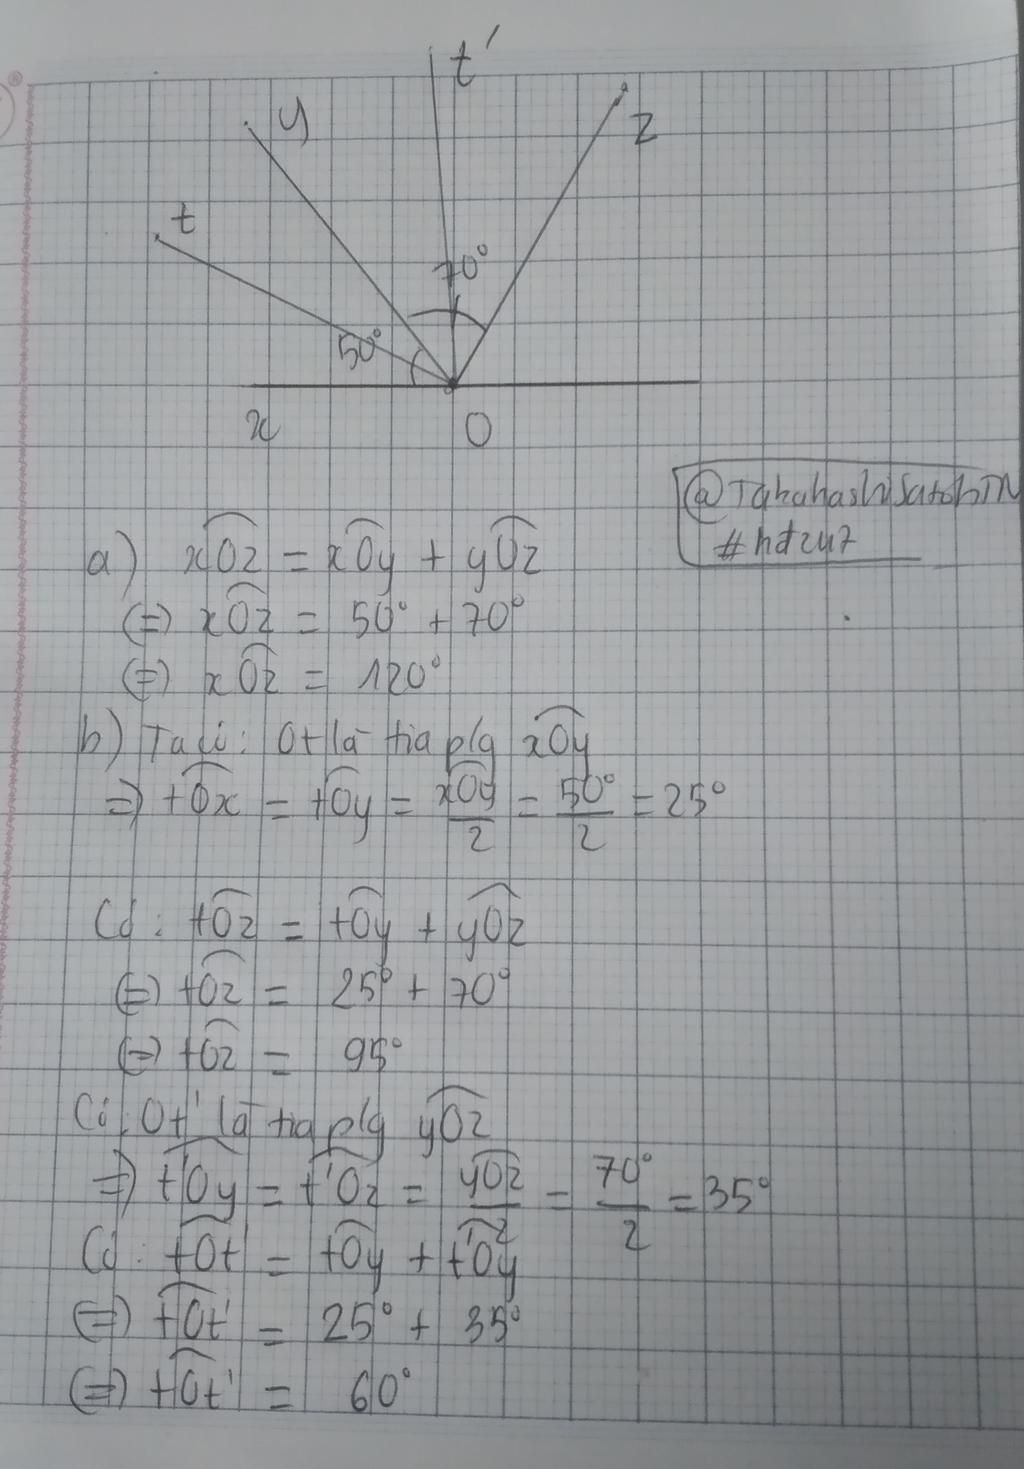 t'
y
z
t
70°
50°
x
O
@TakahashiSatohTN
#hdz47
a) xOz = xOy + yOz
(=) xOz = 50° + 70°
(=) xOz = 120°
b) Ta có: Ot là tia plg xOy
=) tOx = tOy = xOy/2 = 50°/2 = 25°
Có: tOz = tOy + yOz
(=) tOz = 25° + 70°
(=) tOz = 95°
Có: Ot' là tia plg yOz
=) t'Oy = t'Oz = yOz/2 = 70°/2 = 35°
Có: tOt' = tOy + t'Oy
(=) tOt' = 25° + 35°
(=) tOt' = 60°